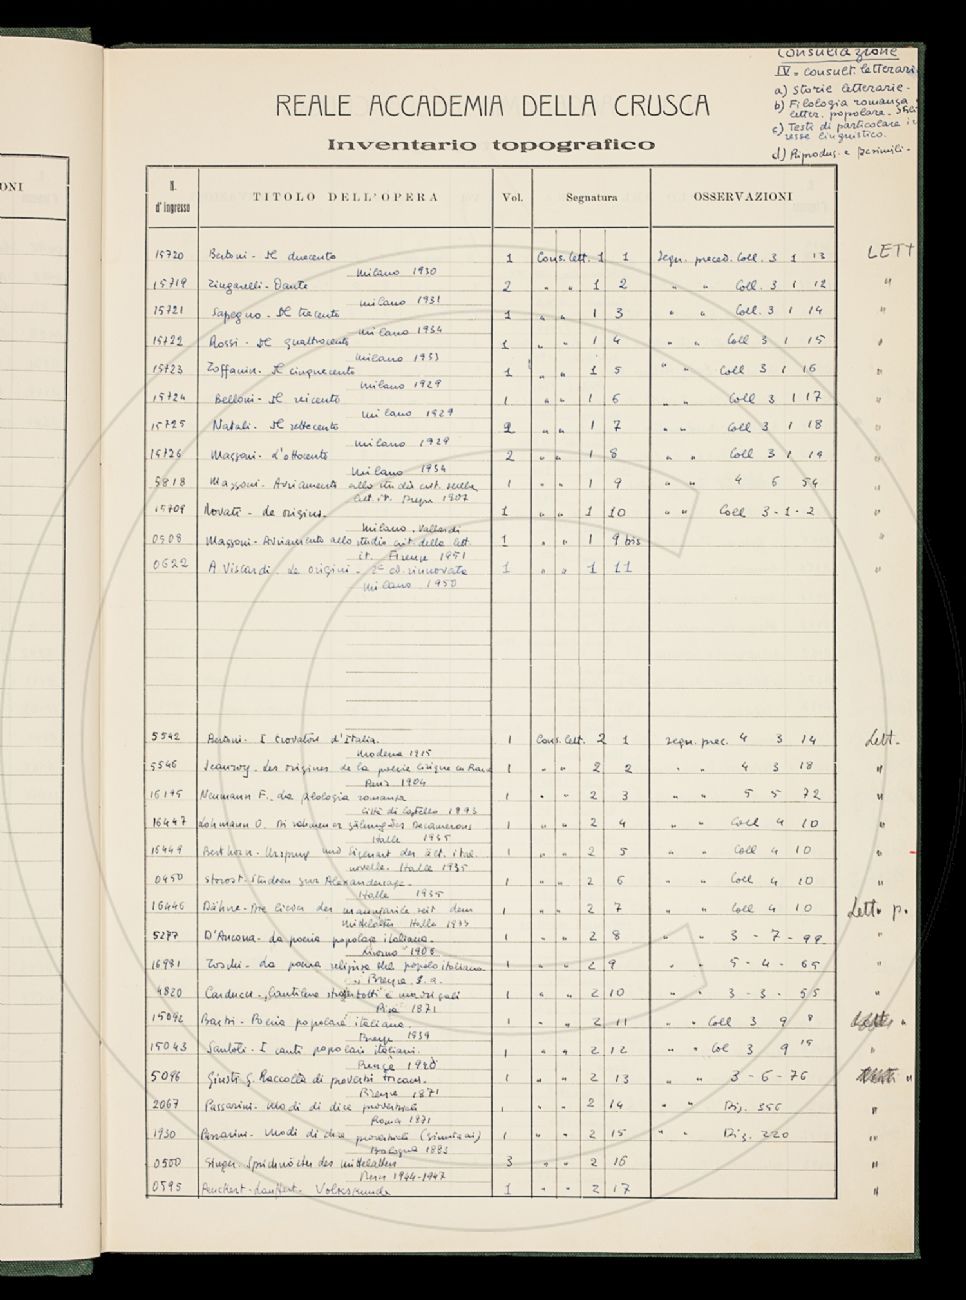 Consultazione
IV. consult. letterari
a) Storie letterarie.
b) Filologia romanza
letter. popolare.
c) Testi di particolare
resse linguistico.
d) Riproduz. e
REALE ACCADEMIA DELLA CRUSCA
Inventario topografico
ONI
N. d'ingresso TITOLO DELL'OPERA Vol. Segnatura OSSERVAZIONI
15720 Bertoni - Il duecento 1 Cons. lett. 1 1 Segn. preced. Coll. 3 1 13 LETT
Milano 1930
15719 Zingarelli - Dante 2 " " 1 2 " " Coll. 3 1 12 "
Milano 1931
15721 Sapegno - Il trecento 1 " " 1 3 " " Coll. 3 1 14 "
Milano 1934
15722 Rossi - Il quattrocento 1 " " 1 4 " " Coll 3 1 15 "
Milano 1933
15723 Toffanin - Il cinquecento 1 " " 1 5 " " Coll 3 1 16 "
Milano 1929
15724 Belloni - Il seicento 1 " " 1 6 " " Coll 3 1 17 "
Milano 1929
15725 Natali - Il settecento 2 " " 1 7 " " Coll 3 1 18 "
Milano 1929
15726 Mazzoni - L'ottocento 2 " " 1 8 " " Coll 3 1 19 "
Milano 1934
5818 Mazzoni - Avviamento allo studio crit. della 1 " " 1 9 " " 4 6 54 "
lett. it. 1907
15709 Novati - Le origini. 1 " " 1 10 " " Coll 3-1-2 "
Milano. Vallardi
0508 Mazzoni - Avviamento allo studio crit. delle lett. 1 " " 1 9 bis "
it. Firenze 1951
0622 A Viscardi. Le origini - 2ª ed. rinnovata 1 " " 1 11 "
Milano 1950
5542 Bertoni - I trovatori d'Italia. 1 Cons. lett. 2 1 Segn. prec. 4 3 14 Lett.
Modena 1915
5546 Jeanroy - Les origines de la poésie lirique en 1 " " 2 2 " " 4 3 18 "
1904
16195 Neumann F. La filologia romanza 1 " " 2 3 " " 5 5 72 "
Città di Castello 1893
16447 Lohmann O. Die rahmenerzählung des Decamerons 1 " " 2 4 " " Coll 4 10 "
Halle 1935
15449 - Ursprung und Eigenart der ält. ital. 1 " " 2 5 " " Coll 4 10 "
novelle. Halle 1935
0450 Storost - Studien zur Alexandersage. 1 " " 2 6 " " Coll 4 10 "
Halle 1935
16446 Dähne - Die lieder der maumariée seit dem 1 " " 2 7 " " Coll 4 10 Lett. p.
Mittelalter Halle 1933
5277 D'Ancona - La poesia popolare italiana. 1 " " 2 8 " " 3-7-99 "
Livorno 1906
16981 Toschi - La poesia religiosa del popolo italiano 1 " " 2 9 " " 5-4-65 "
Firenze, s. a.
4820 Carducci - Cantilene strambotti e madrigali 1 " " 2 10 " " 3-3-55 "
Pisa 1871
15042 Barbi - Poesia popolare italiana. 1 " " 2 11 " " Coll 3 9 8 "
Firenze 1939
15043 Santoli - I canti popolari italiani. 1 " " 2 12 " " Col 3 9 15 "
Firenze 1940
5096 Giusti G. Raccolta di proverbi toscani. 1 " " 2 13 " " 3-6-76 "
Firenze 1871
2067 Passarini - Modi di dire proverbiali 1 " " 2 14 " " Diz. 356 "
Roma 1871
1930 Passarini - Modi di dire proverbiali 1 " " 2 15 " " Diz. 220 "
Bologna 1883
0500 Singer - Sprichwörter des mittelalters 3 " " 2 16 "
Bern 1944-1947
0595 Peuckert-Lauffer. Volkskunde 1 " " 2 17 "